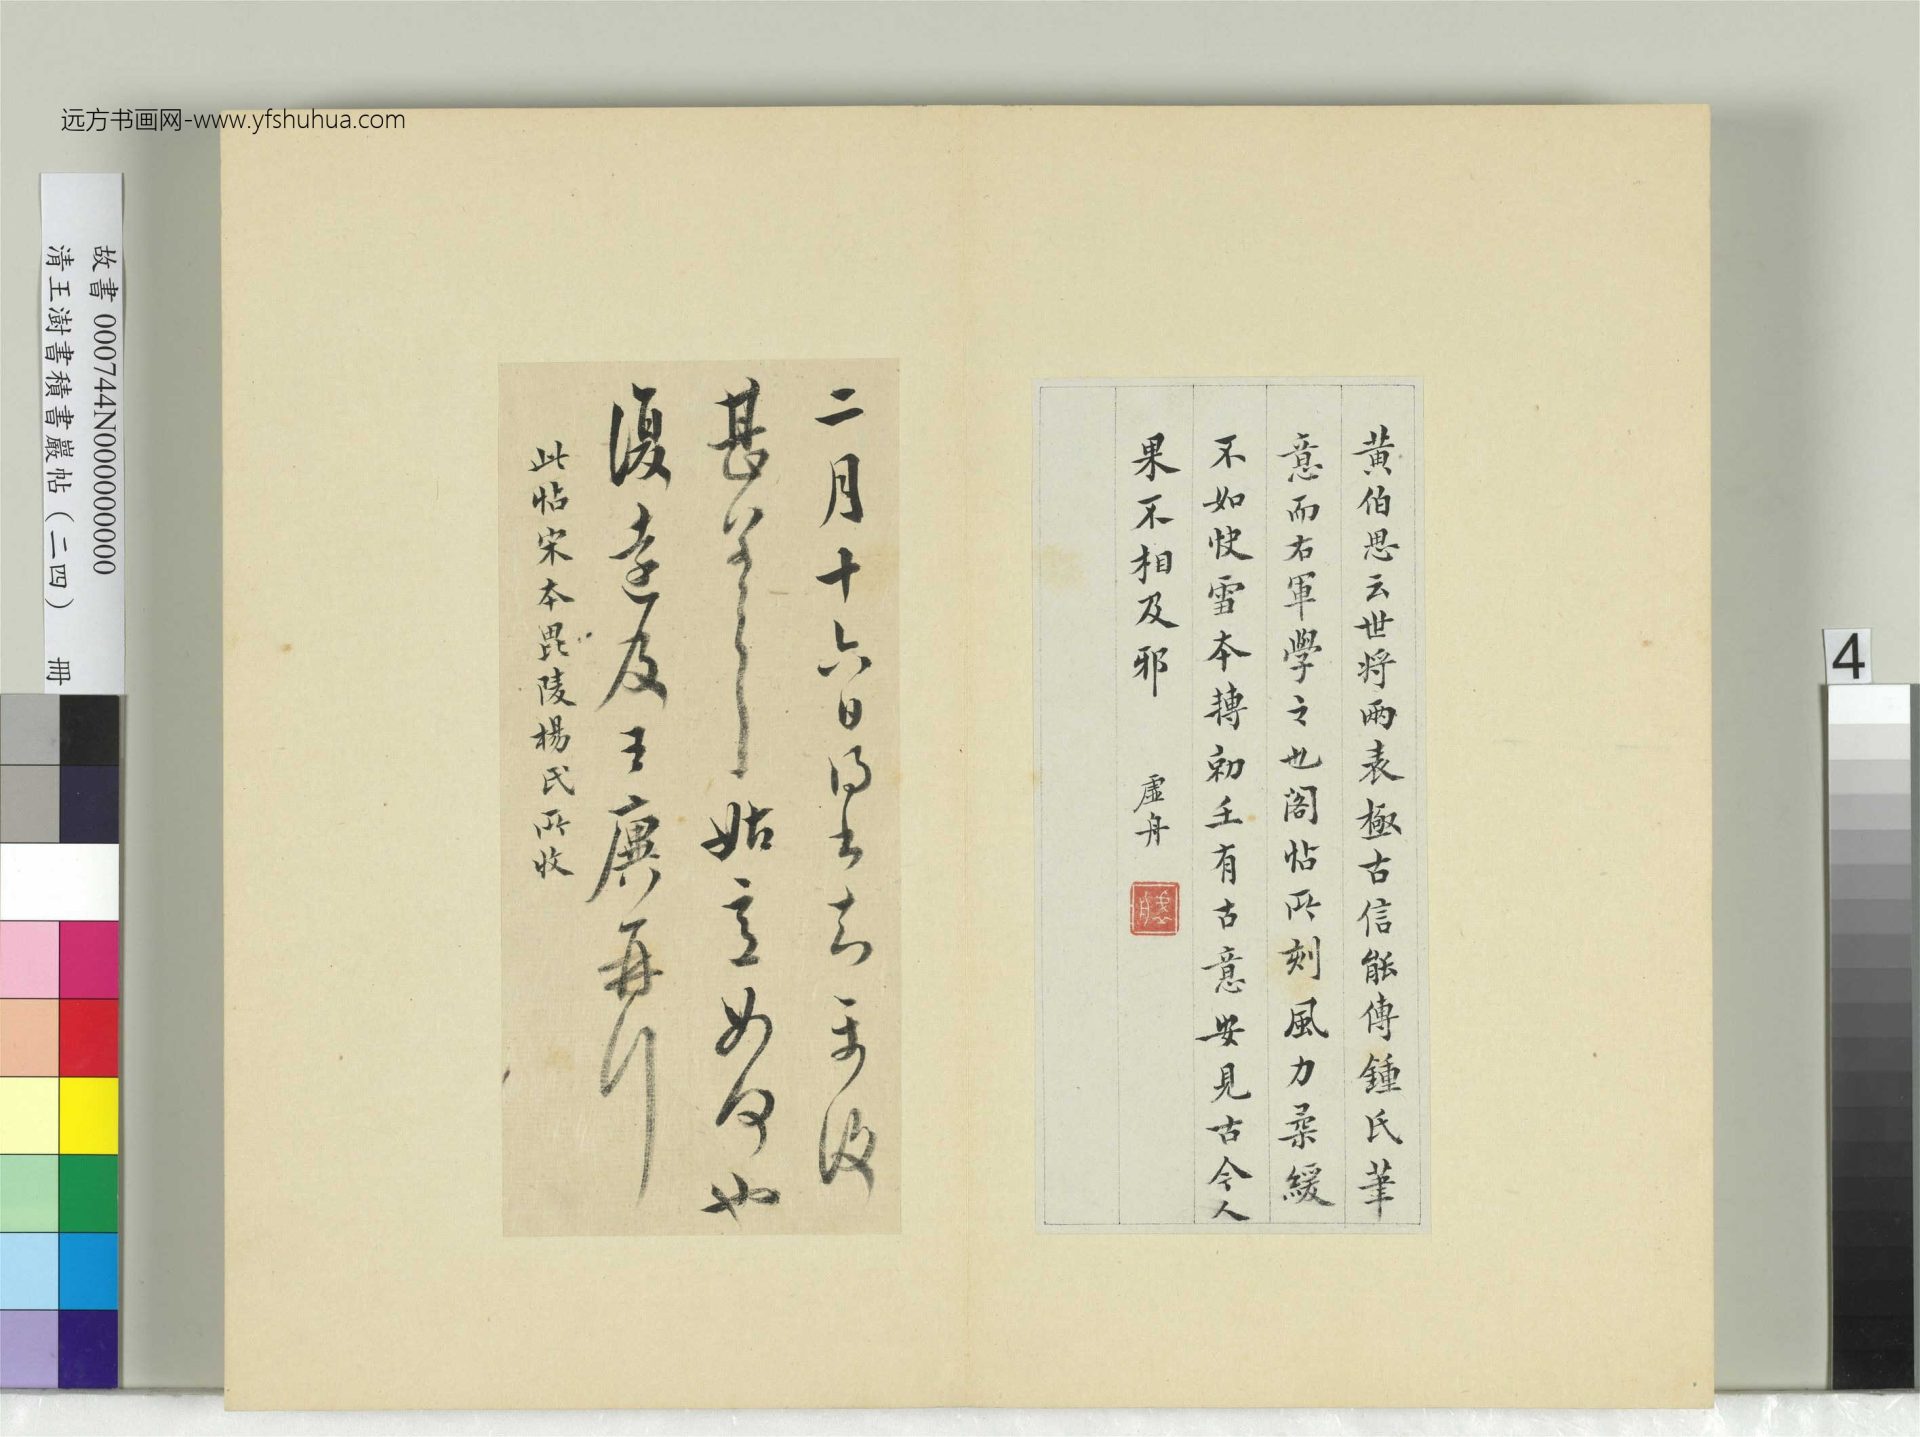 远方书画网-www.yfshuhua.com
故書 000744N000000000
清王澍書積書巖帖（二四） 冊
4
黃伯思云世將兩表極古信能傳鍾氏筆
意而右軍學之也閣帖所刻風力柔緩
不如快雪本轉勒全有古意安見古今人
果不相及邪
虛舟
二月十六日得書知
復甚善
姑意如何也
復遠及王廙再行
此帖宋本毘陵楊氏所收